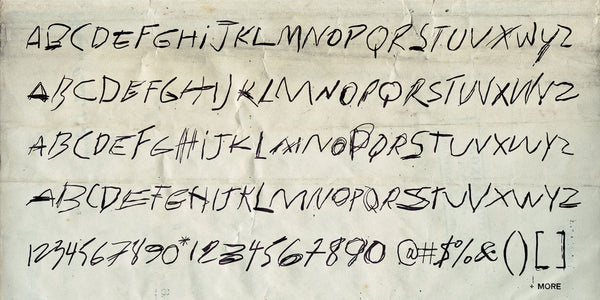 ABCDEFGHiJKLMNOPQRSTUVXWYZ
ABCDEFGHIJKLMNOPQRSTUVXWYZ
ABCDEFGHiJKLMNOPQRSTUVXWYZ
ABCDEFGHIJKLMNOPQRSTUVXWYZ
1234567890*1234567890 @#$%&()[]
+ MORE